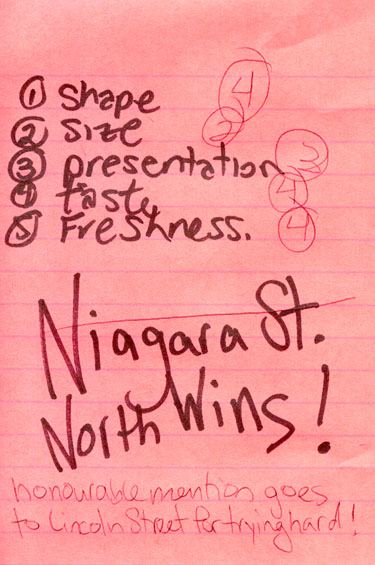 ① Shape 4
② Size 2
③ presentation 3
④ tasty 4
⑤ Freshness. 4
Niagara St.
North Wins!
honourable mention goes
to Lincoln Street for trying hard!